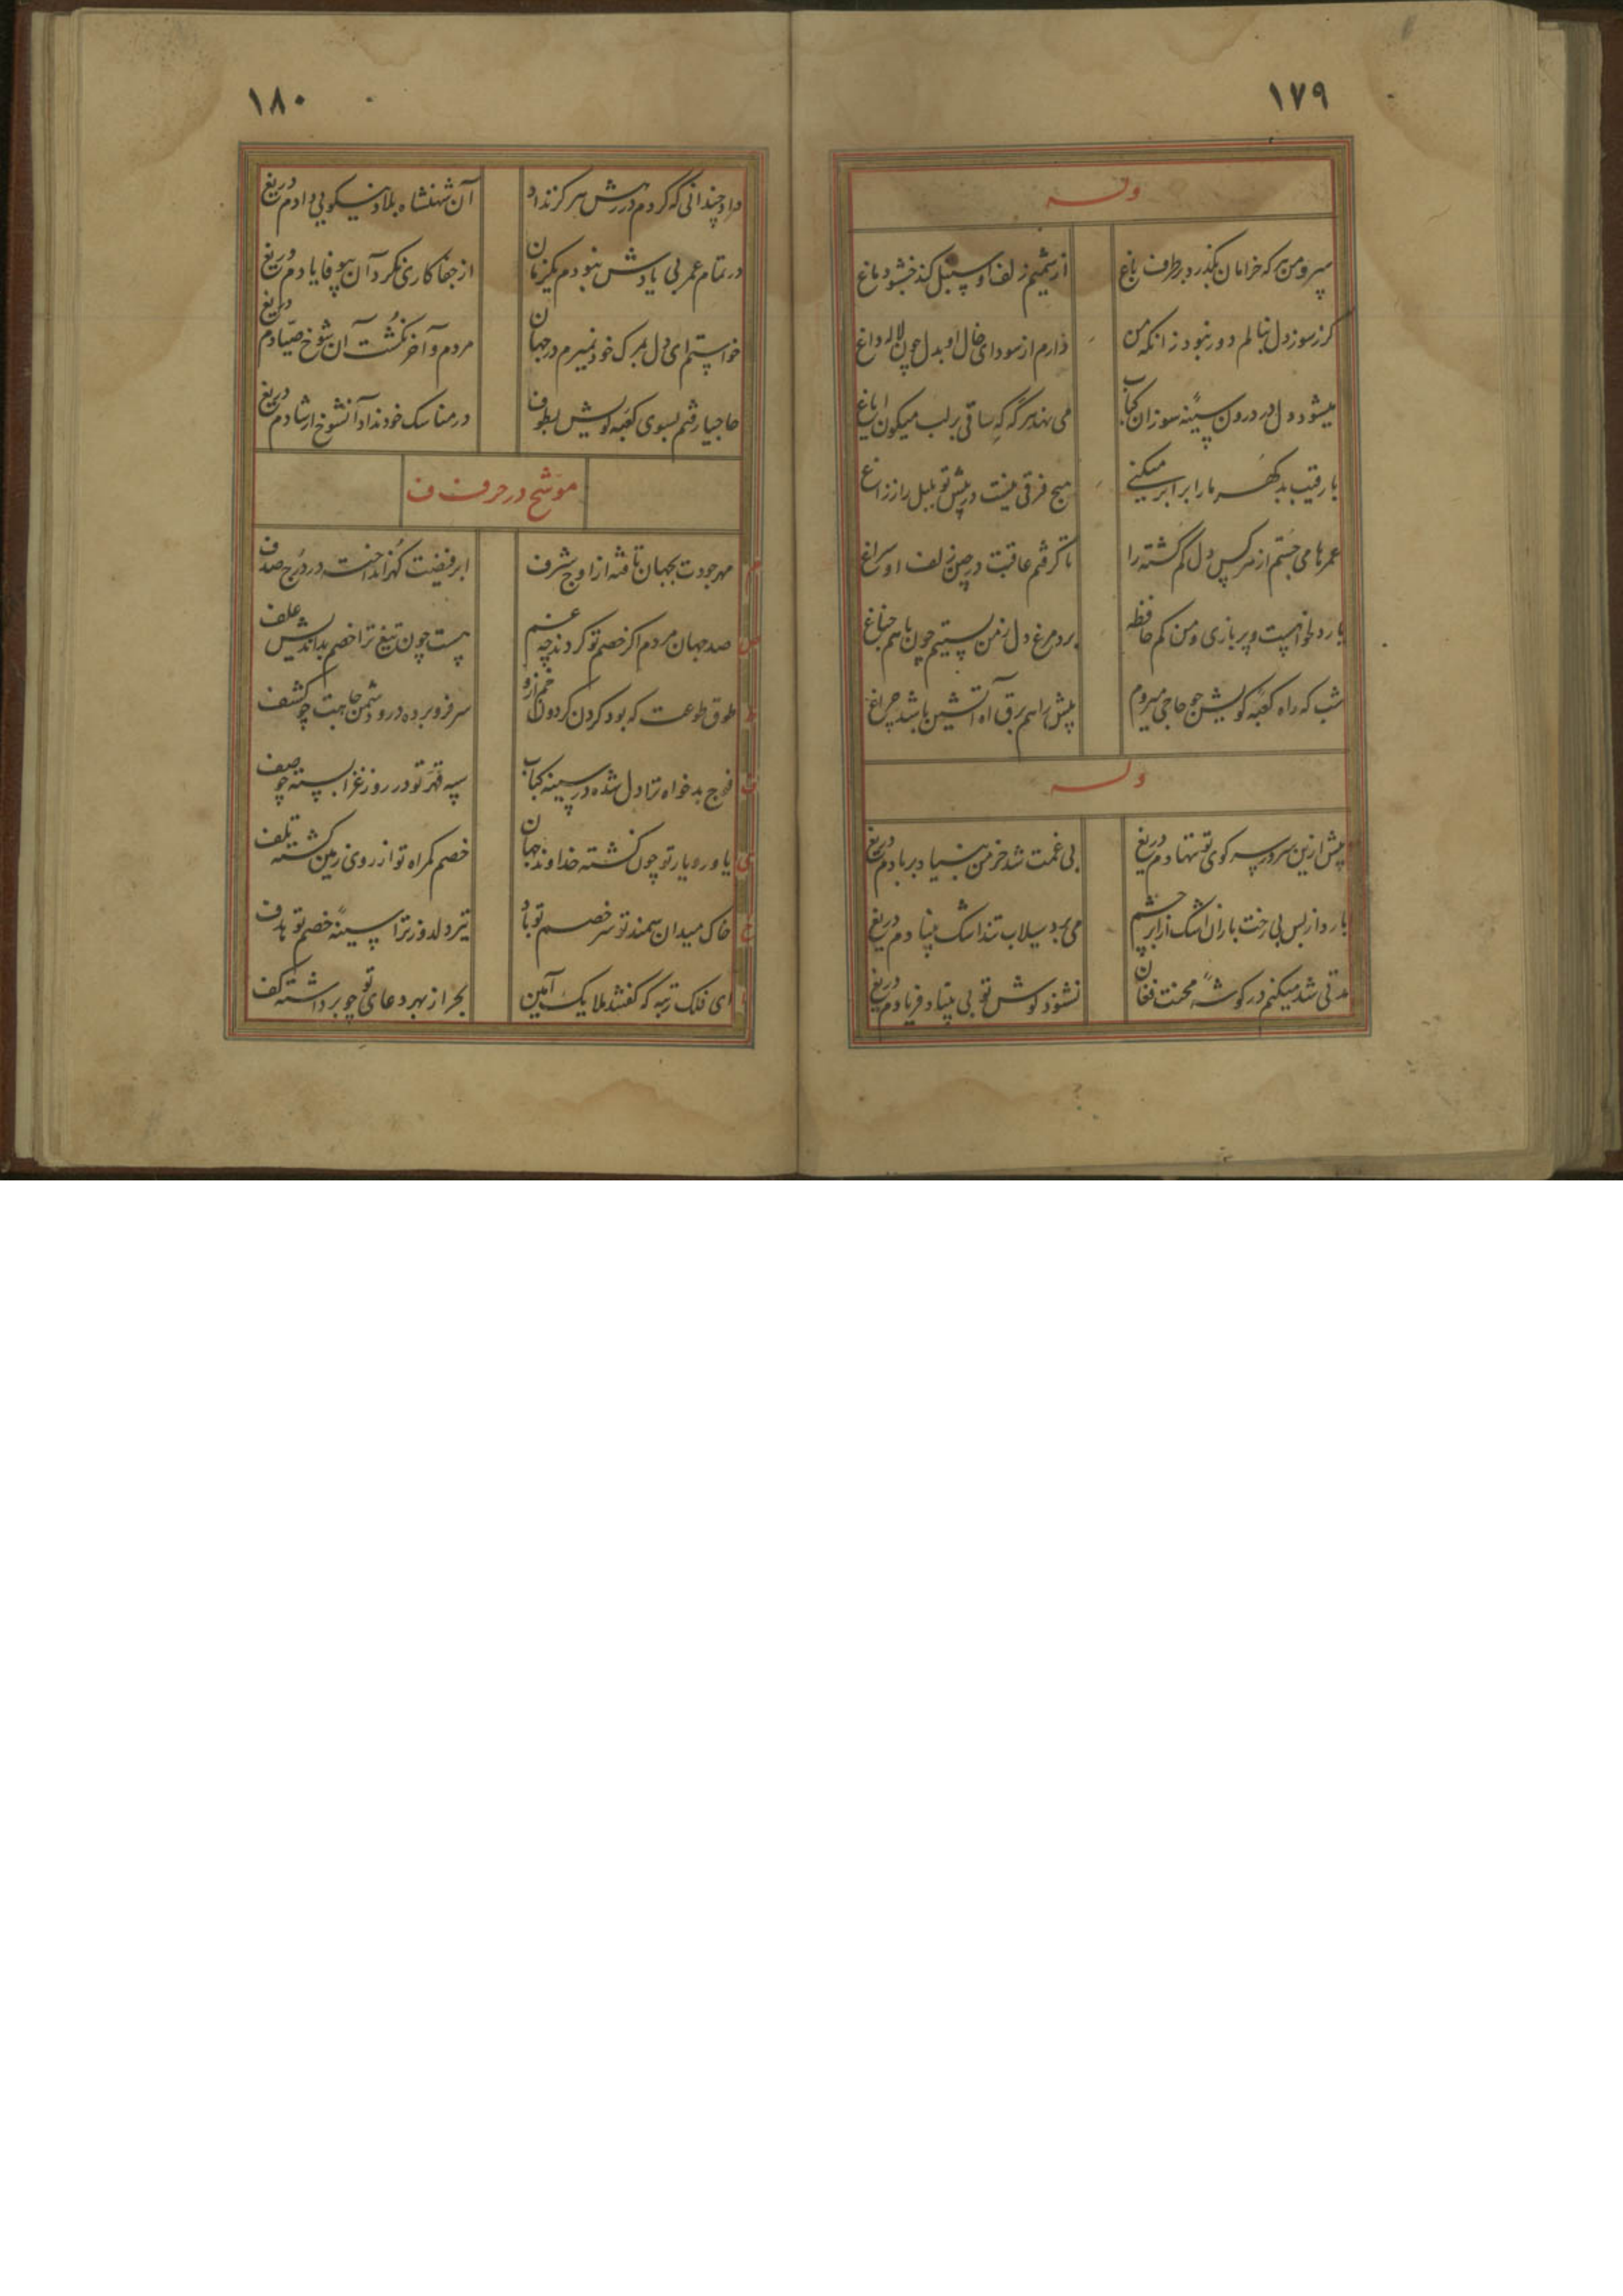 ۱۷۹
وله
سرو من هر که خرامان بگذرد بر طرف باغ
از شمیم زلف او سنبل کند خشبو دماغ
گر ز سوز دل بنالم دور نبود زانکه من
دارم از سودای خال او بدل چون لاله داغ
میشود دل در درون سینهٔ سوزان کباب
می نهد هر گه که ساقی بر لب میگون ایاغ
با رقیب بد گهر ما را برابر میکنی
هیچ فرقی نیست در پیش تو بلبل را ز زاغ
عمرها می جستم از هر کس دل گم گشته را
تا گرفتم عاقبت در چین زلف او سراغ
یار دلخواهست و پر بازی و من کم حافظه
برد مرغ دل ز من بستیم چون با هم جناغ
شب که راه کعبهٔ کویش چو حاجی میروم
پیش راهم برق آه آتشین باشد چراغ
وله
پیش ازین سر در سر کوی تو ننهادم دریغ
بی غمت شد خرمن بنیاد بر بادم دریغ
بارد از بس بی رخت باران اشک از ابر چشم
می برد سیلاب تند اشک بنیادم دریغ
مدتی شد میکنم در گوشهٔ محنت فغان
نشنود گوش تو بی بنیاد فریادم دریغ
۱۸۰
داد چندانی که کردم در درش هرگز نداد
آن شهنشاه بلاد نیکویی دادم دریغ
در تمام عمر بی یادش نبودم یکزمان
از جفا کاری نکرد آن بیوفا یادم دریغ
خواستم ای دل بمرگ خود نمیرم در جهان
مردم و آخر نکُشت آن شوخ صیّادم دریغ
حاجیا رفتم بسوی کعبه کویش بطوف
در مناسک خود نداد آنشوخ ارشادم دریغ
موشح در حرف ف
م مهر جودت بجهان تافته از اوج شرف
ابر فیضت گهر انداخته در دُرج صدف
ص صد جهان مردم اگر خصم تو گردند چه غم
هست چون تیغ ترا خصم بداندیش علف
ط طوق طوعت که بود گردن گردون خم ازو
سر فرو برده درو دشمن جاهت چو کشف
ف فوج بدخواه ترا دل شده در سینه کباب
سپه قهر تو در روز غزا بسته چو صف
ی یاور و یار تو چون گشته خداوند جهان
خصم گمراه تو از روی زمین گشته تلف
خ خاک میدان سمند تو سر خصم تو باد
تیر دلدوز ترا سینهٔ خصم تو هدف
ا ای فلک رتبه که گفتند ملایک آمین
بحر از بهر دعای تو چو برداشته کف